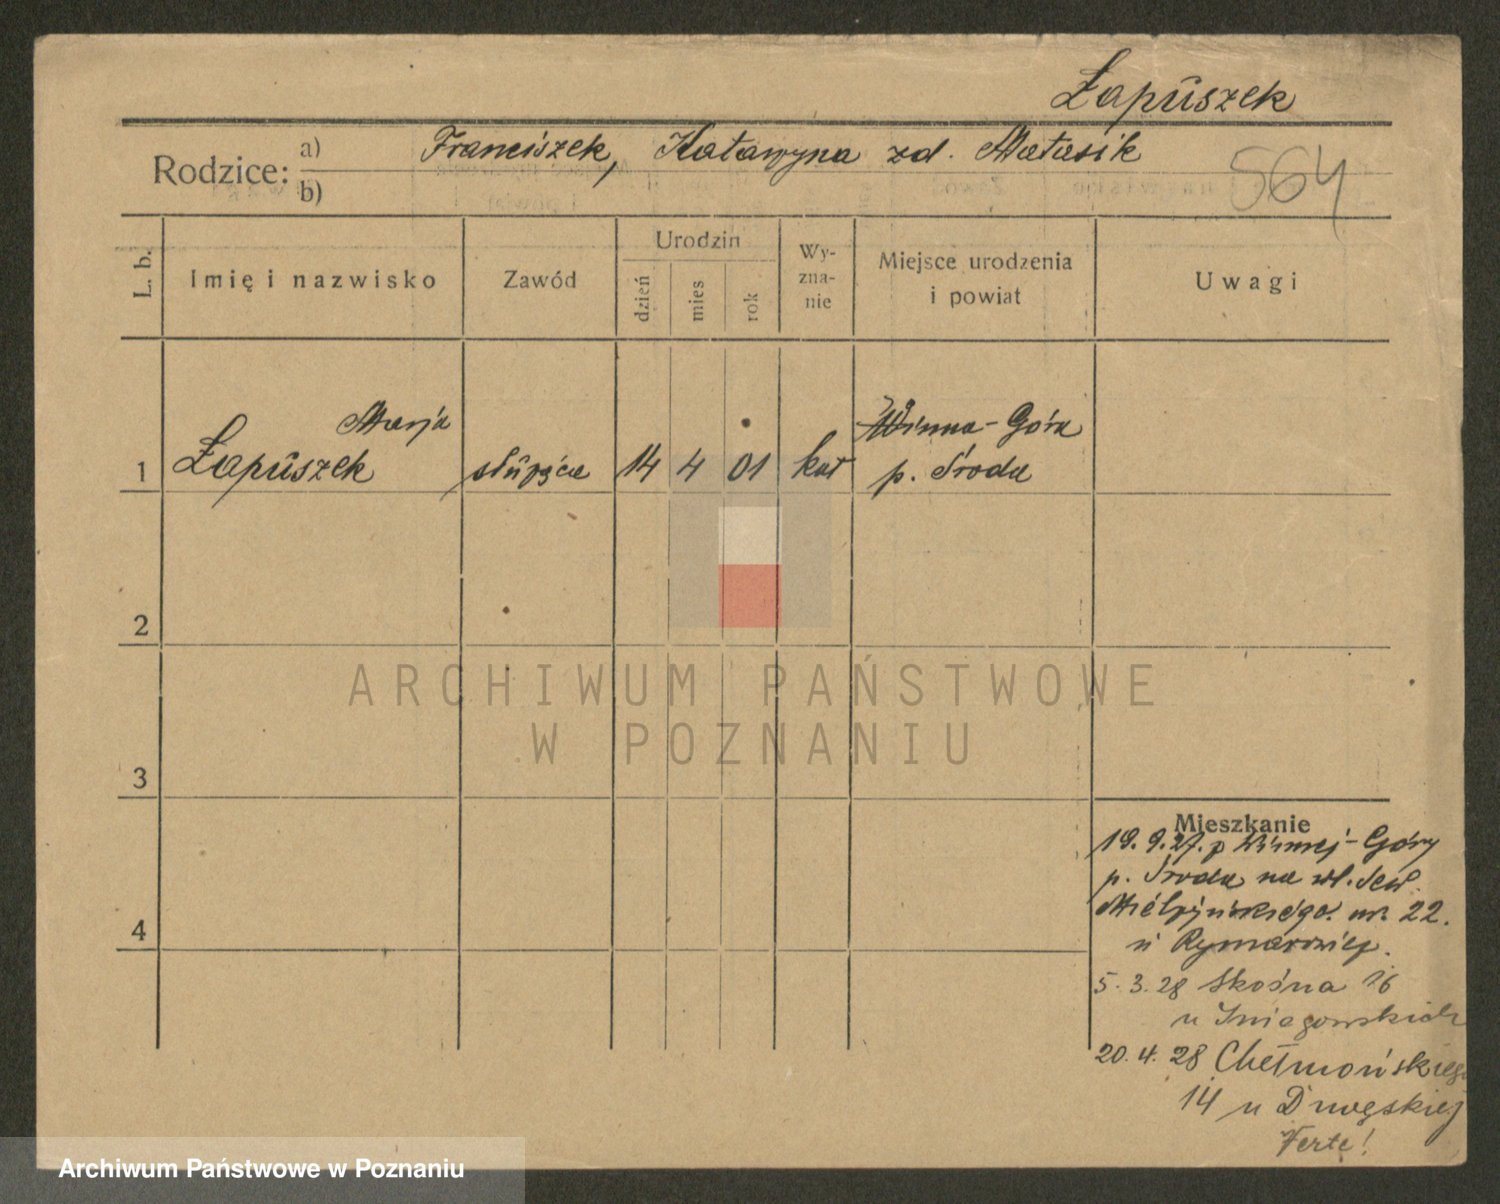 Łapuszek
Rodzice:
a) Franciszek, Katarzyna zd. Matusik
b)
564
L. b.
Imię i nazwisko
Zawód
Urodzin
dzień
mies
rok
Wy-
zna-
nie
Miejsce urodzenia
i powiat
Uwagi
Marja
1 Łapuszek
służąca
14 4 01
kat
Winna-Góra
p. Środa
2
3
4
ARCHIWUM PAŃSTWOWE
W POZNANIU
Mieszkanie
19.9.27. p Winnej-Góry
p. Środa na wł. Sew.
Mielżyńskiego. nr. 22.
u
5.3.28 Skośna 16
u
20.4.28 Chełmońskiego
14 u
Verte!
Archiwum Państwowe w Poznaniu